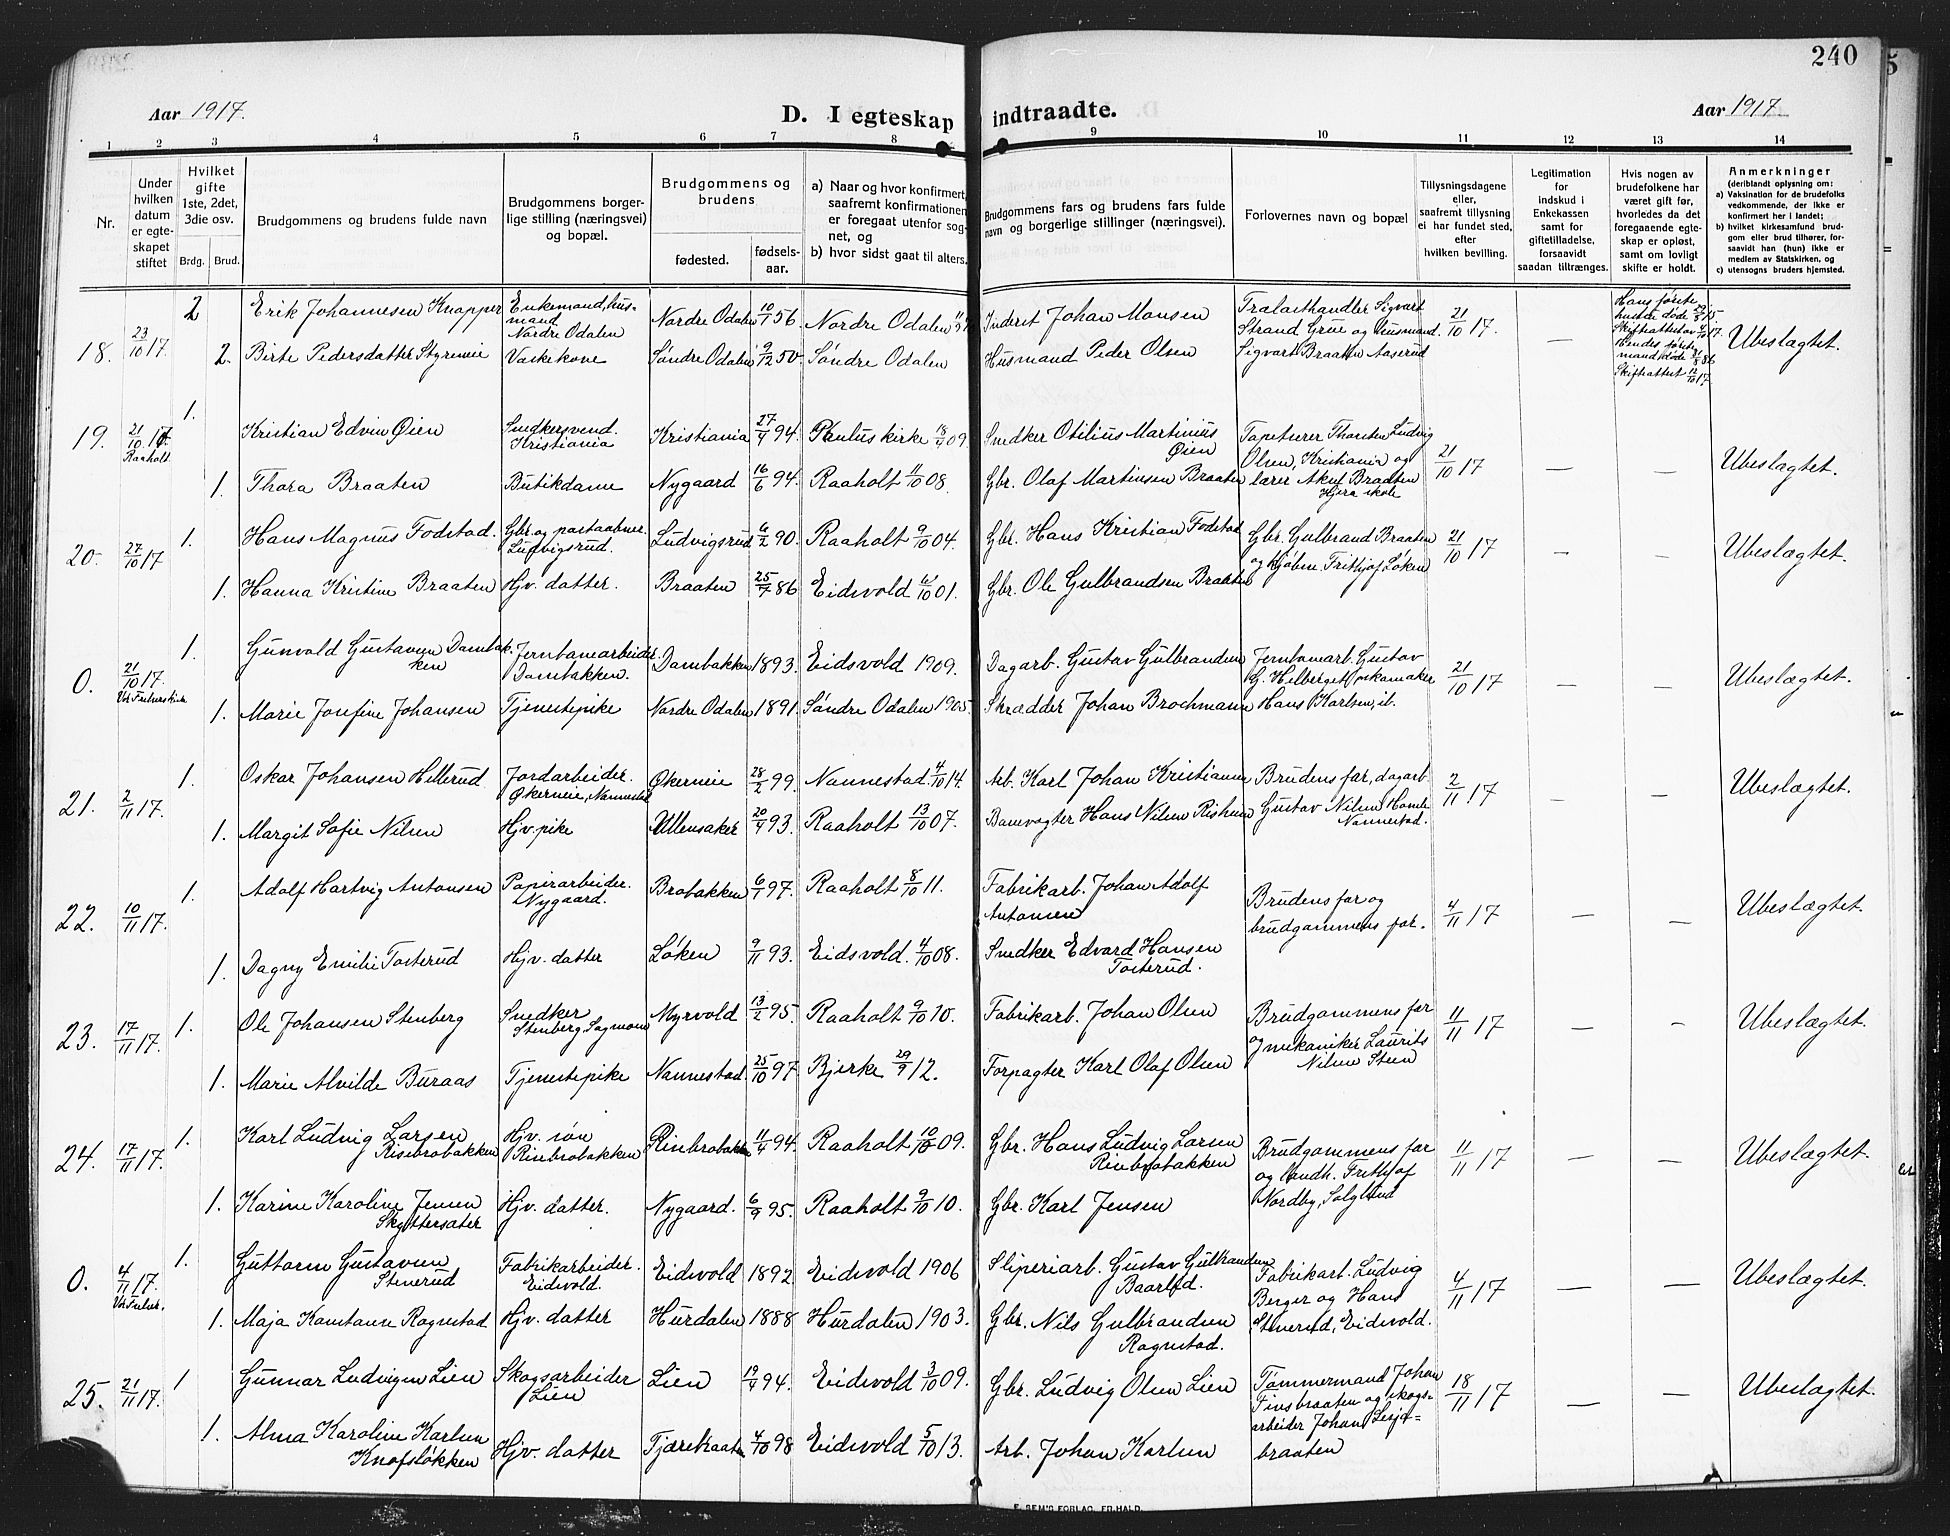 240
Aar 1917.
D. I egteskap indtraadte.
Aar 1917
1 2 3 4 5 6 7 8 9 10 11 12 13 14
Nr.
Under hvilken datum er egteskapet stiftet
Hvilket gifte 1ste, 2det, 3die osv.
Brdg. Brud.
Brudgommens og brudens fulde navn
Brudgommens borgerlige stilling (næringsvei) og bopæl.
Brudgommens og brudens
fødested.
fødselsaar.
a) Naar og hvor konfirmert, saafremt konfirmationen er foregaat utenfor sognet, og
b) hvor sidst gaat til alters.
Brudgommens fars og brudens fars fulde navn og borgerlige stillinger (næringsvei).
Forlovernes navn og bopæl
Tillysningsdagene eller, saafremt tillysning ei har fundet sted, efter hvilken bevilling.
Legitimation for indskud i Enkekassen samt for giftetilladelse, forsaavidt saadan tiltrænges.
Hvis nogen av brudefolkene har været gift før, hvorledes da det foregaaende egteskap er opløst, samt om lovligt skifte er holdt.
Anmerkninger
(deriblandt oplysning om:
a) Vaksination for de brudefolks vedkommende, der ikke er konfirmert her i landet;
b) hvilket kirkesamfund brudgom eller brud tilhører, forsaavidt han (hun) ikke er medlem av Statskirken, og
c) utensogns bruders hjemsted.
18. 23/10 17. 2 Erik Johannesen Knapper Enkemand, husmand Nordre Odalen Nordre Odalen 10/1 56 Nordre Odalen Inderst Johan Monsen Tralasthandler Sigvart Strand Grue og husmand Sigvart Braaten Aaserud 21/10 17. — Hans første hustru døde 29/3 15 Skifteattest av 4/10 17. Hendes første mand døde 21/8 86 Skifteattest 12/10 17 Ubeslægtet.
2. Birte Pedersdatter Styrenie Vaskekone Søndre Odalen 9/12 50 Søndre Odalen Husmand Peder Olsen
19. 21/10 17. Raaholt 1. Kristian Edvin Øien Snedkersvend. Kristiania Kristiania 27/4 94. Paulus kirke 18/4 09. Snedker Otilius Martinius Øien Tapetserer Thorsten Ludvig Olsen, Kristiania og lærer Aksel Braaten Hjera skole 21/10 17 — — Ubeslægtet.
1. Thora Braaten Butikdame Nygaard 16/6 94. Raaholt 11/10 08. Gbr. Olaf Martinsen Braaten
20. 27/10 17 1. Hans Magnus Fodstad. Gbr. og postaabner. Ludvigsrud. Ludvigsrud 6/2 90. Raaholt 9/10 04. Gbr. Hans Kristian Fodstad Gbr. Gulbrand Braaten og kjøbm. Frithjof Løken 21/10 17 — — Ubeslægtet.
1. Hanna Kristine Braaten Hjv. datter. Braaten 25/7 86 Eidsvold 6/10 01. Gbr. Ole Gulbrandsen Braaten
0. 21/10 17. 1. Gunvald Gustavsen Dambakken Jernbanearbeider. Dambakken. Dambakken 1893. Eidsvold 1909. Dagarb. Gustav Gulbrandsen Jernbanearb. Gustav G. Helberget, skomaker Hans Karlsen, ib. 21/10 17 — — Ubeslægtet.
1. Marie Josefine Johansen Tjenestepike Nordre Odalen 1891. Søndre Odalen 1905. Skrædder Johan Brochmann
21. 2/11 17. 1. Oskar Johansen Hillerud Jordarbeider. Økerneie, Nannestad Økerneie 28/2 99. Nannestad 4/10 14. Arb. Karl Johan Kristiansen Brudens far, dagarb. Gustav Nilsen Homle Nannestad. 2/11 17 — — Ubeslægtet.
1. Margit Sofie Nilsen Hjv. pike Ullensaker 20/4 93. Raaholt 13/10 07. Banevogter Hans Nilsen Risheim
22. 10/11 17. 1. Adolf Hartvig Antonsen Papirarbeider. Nygaard. Brobakken 6/1 97. Raaholt 8/10 11. Fabrikarb. Johan Adolf Antonsen Brudens far og brudgommens far. 4/11 17 — — Ubeslægtet.
1. Dagny Emilie Tosterud Hjv. datter Løken 9/11 93. Eidsvold. 4/10 08. Snedker Edvard Hansen Tosterud.
23. 17/11 17. 1. Ole Johansen Stenberg Snedker Stenberg, Sagmoen Myrvold 13/2 95. Raaholt 9/10 10. Fabrikarb. Johan Olsen Brudgommens far og mekaniker Laurits Nilsen Steen 11/11 17 — — Ubeslægtet.
1. Marie Alvilde Buraas Tjenestepike Nannestad. 25/10 97 Bjerke 29/9 12. Forpagter Karl Olaf Olsen
24. 17/11 17. 1. Karl Ludvig Larsen Risebrobakken Hjv. søn Risebrobakken Risebrobakken 11/4 94. Raaholt 10/10 09. Gbr. Hans Ludvig Larsen Risebrobakken Brudgommens far og landh. Frithjof Nordby, Solglind 11/11 17 — — Ubeslægtet.
1. Karine Karoline Jensen Skyttersæter Hjv. datter. Nygaard. 6/9 95. Raaholt 9/10 10. Gbr. Karl Jensen
0. 4/11 17. 1. Guttorm Gustavsen Stenerud Fabrikarbeider. Eidsvold. Eidsvold 1892 Eidsvold 1906 Sliperiarb. Gustav Gulbrandsen Baarlid. Fabrikarb. Ludvig Berger og Hans Stenerud, Eidsvold. 4/11 17 — — Ubeslægtet.
1. Maja Konstanse Rognstad Hjv. datter Hurdalen 1888 Hurdalen 1903. Gbr. Nils Gulbrandsen Rognstad.
25. 21/11 17. 1 Gunnar Ludvigsen Lien Skogsarbeider Lien Lien 19/4 94. Eidsvold 3/10 09. Gbr. Ludvig Olsen Lien Tømmermand Johan Finsbraaten og skogsarbeider Johan Lesjøbraaten 18/11 17 — — Ubeslægtet.
1. Alma Karoline Karlsen Knofsløkken Hjv. datter Tjærebraaten 4/10 98 Eidsvold 5/10 13. Arb. Johan Karlsen
E. SEM'S FORLAG, FR.HALD.